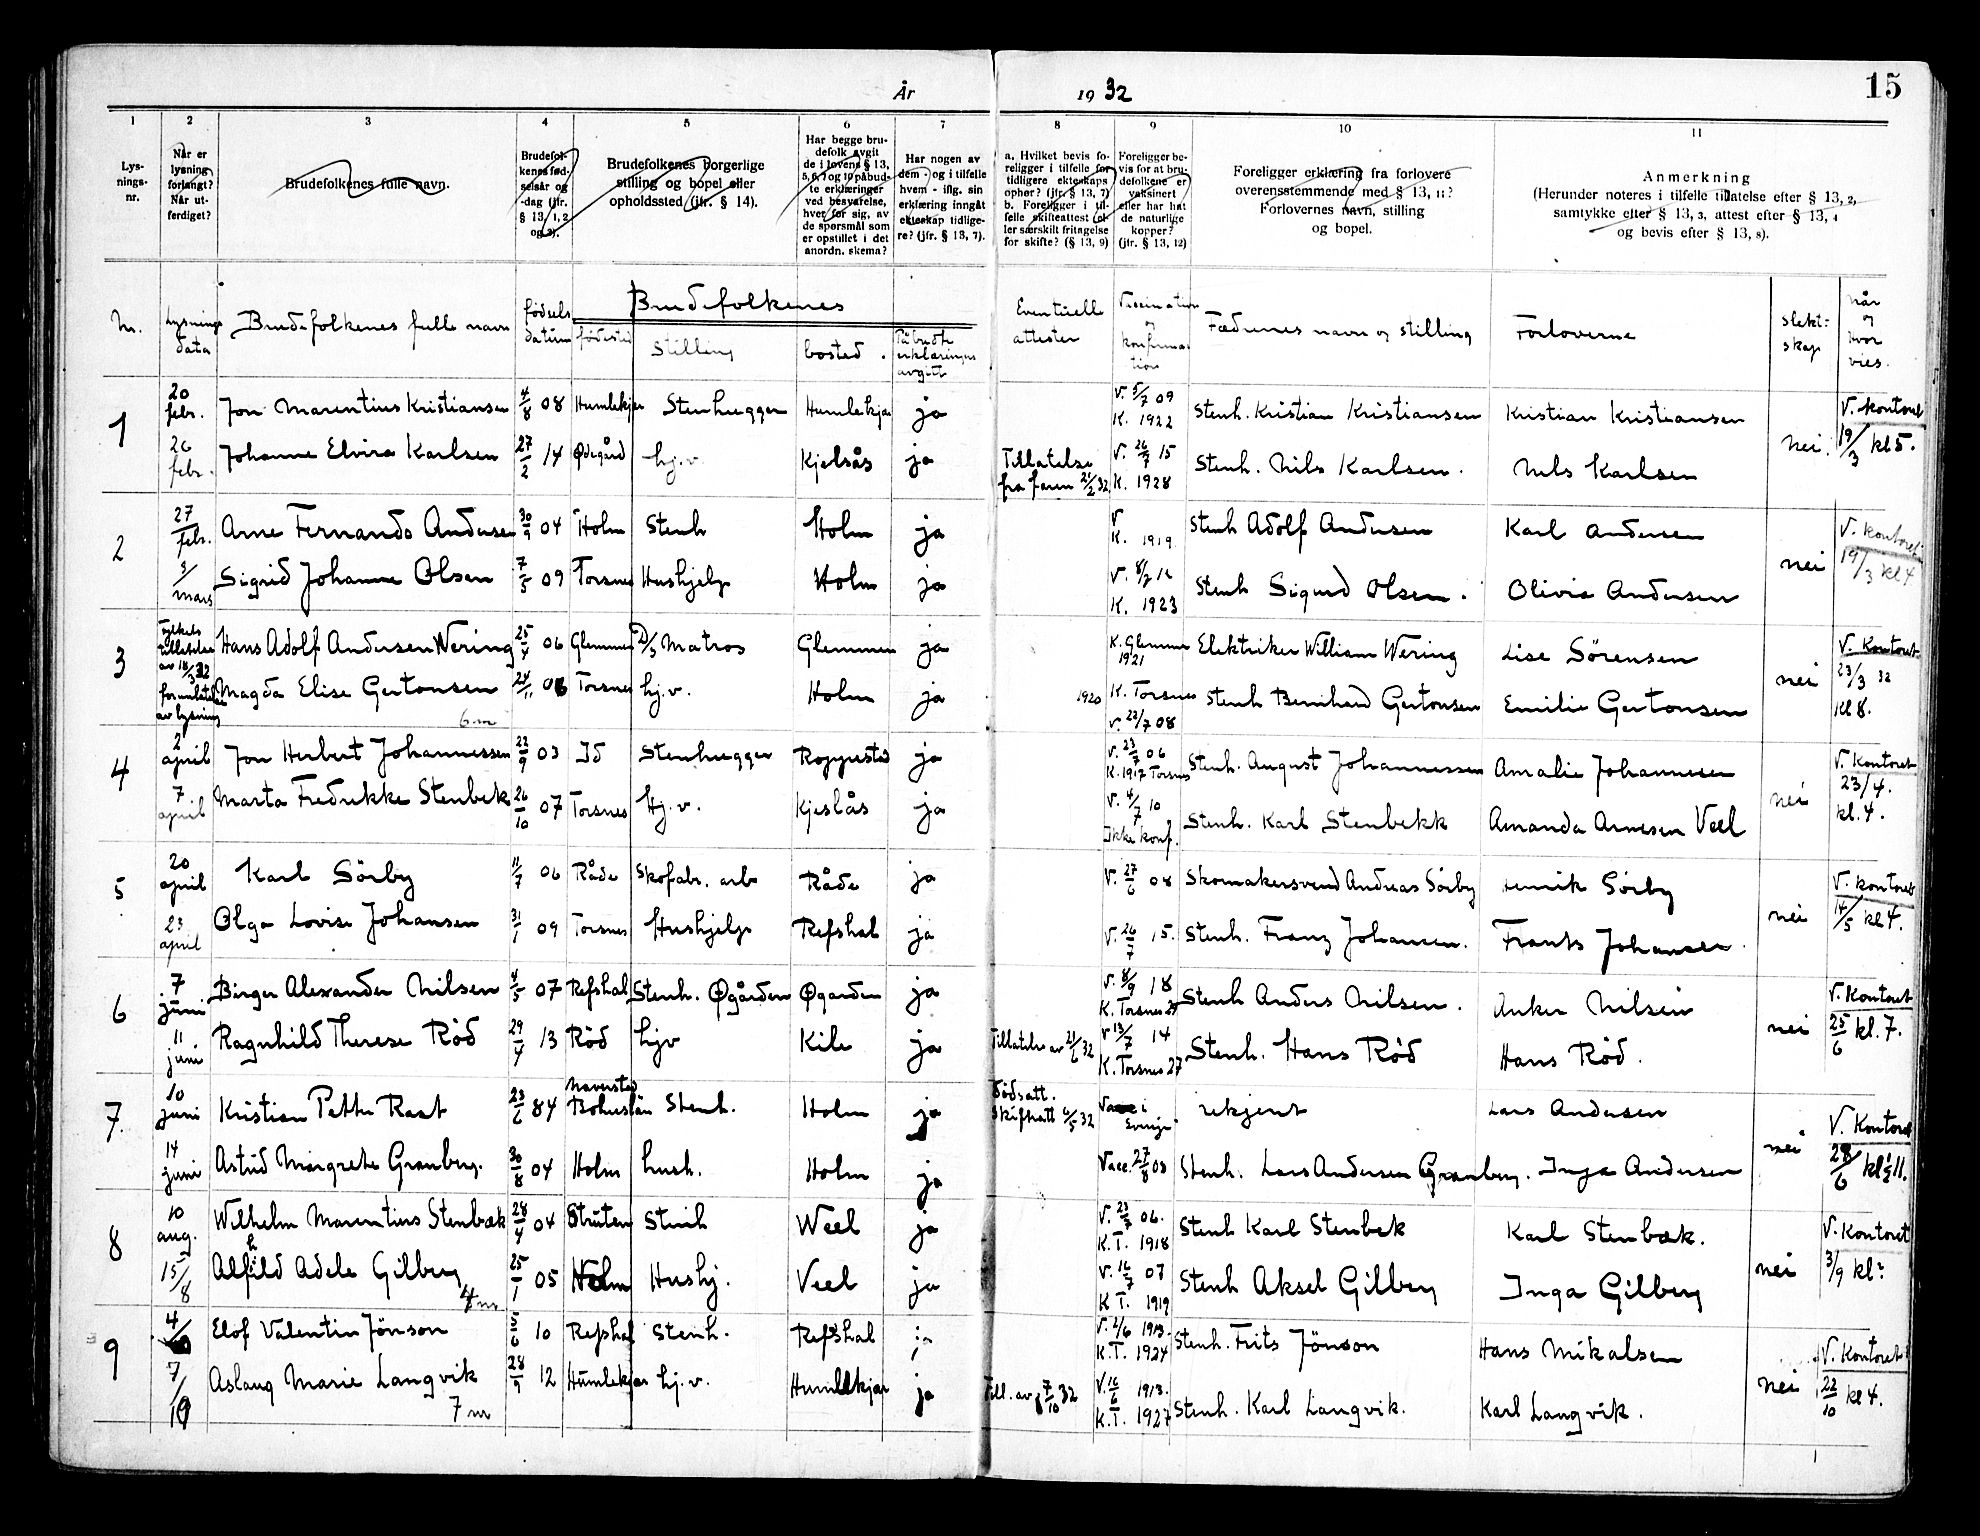 År 1932
15
1 2 3 4 5 6 7 8 9 10 11
Lys-
nings-
nr.
Når er
lysning
forlangt?
Når ut-
ferdiget?
Brudefolkenes fulle navn.
Brudefol-
kenes fød-
selsår og
-dag (jfr.
§ 13, 1, 2
og 3).
Brudefolkenes borgerlige
stilling og bopel eller
opholdssted (jfr. § 14).
Har begge bru-
defolk avgit
de i lovens § 13,
5, 6, 7 og 10 påbud-
te erklæringer
ved besvarelse,
hver for sig, av
de spørsmål som
er opstillet i det
anordn. skema?
Har nogen av
dem - og i tilfelle
hvem - iflg. sin
erklæring inngåt
ekteskap tidlige-
re? (jfr. § 13, 7).
a. Hvilket bevis fo-
religger i tilfelle for
tidligere ekteskaps
ophør? (jfr. § 13, 7)
b. Foreligger i til-
felle skifteattest el-
ler særskilt fritagelse
for skifte? (§ 13, 9)
Foreligger be-
vis for at bru-
defolkene er
vaksinert
eller har hat
de naturlige
kopper?
(jfr. § 13, 12)
Foreligger erklæring fra forlovere
overensstemmende med § 13, 11?
Forlovernes navn, stilling
og bopel.
Anmerkning
(Herunder noteres i tilfelle tillatelse efter § 13, 2,
samtykke efter § 13, 3, attest efter § 13, 4
og bevis efter § 13, 8).
Nr.
Lysnings
data
Brudefolkenes fulle navn
fødsels
datum
Brudefolkenes
fødested
Stilling
bosted.
Påbudte
erklæringer
avgitt
Eventuelle
attester
Vaccination
og
konfirma-
tion
Fædrenes navn og stilling
Forloverne
Slekt-
skap
når
og
hvor
vies.
1 20 febr. Jon Marentius Kristiansen 4/8 08 Humlekjær Stenhugger Humlekjær ja V. 5/7 09 K. 1922 Stenh. Kristian Kristiansen Kristian Kristiansen nei. V. kontoret 19/3 kl 5.
26 febr. Johanne Elvira Karlsen 27/2 14 Ødegård hj.v. Kjelsås ja Tillatelse fra faren 21/2 32 V. 26/7 15 K. 1928 Stenh. Nils Karlsen. Nils Karlsen
2 27/febr. Arne Fernando Andersen 30/9 04 Holm Stenh Holm ja V K. 1919 Stenh Adolf Andersen Karl Andersen nei V. Kontoret 19/3 kl 4
3/mars Sigrid Johanne Olsen 7/5 09 Torsnes Hushjelp Holm ja V. K. 1923 Stenh Sigurd Olsen. Olivia Andersen
3 Fylkets tillatelse av 18/3 32 forutlatelse av lysning Hans Adolf Andersen Wering 25/4 06 Glemmen D/S Matros Glemmen ja K. Glemmen 1921 Elektriker William Wering Lise Sörensen nei V. Kontoret 23/3 32 Kl 8.
Magda Elise Gertonsen 24/11 06 Torsnes hj.v. Holm ja 1920 K. Torsnes V. 22/7 08 Stenh Bernhard Gertonsen Emilie Gertonsen
6 m
4 2 april Jon Herbert Johannessen 22/9 03 Id Stenhugger Roppestad ja V. 23/7 06 K. 1917 Torsnes Stenh. August Johannessen Amalie Johannesen nei V. Kontoret 23/4. kl. 4.
7 april Marta Fredrikke Stenbek 26/10 07 Torsnes Hj.v. Kjeslås ja V. 4/7 10 Ikke konf. Stenh. Karl Stenbekk Amanda Arnesen Veel
5 20 april Karl Sörby 11/7 06 Råde Skofabr. arb Råde ja V. 27/6 08 Skomakersvend Andreas Sörby Henrik Sörby nei V. kontoret 14/5 kl 4.
23 april Olga Lovise Johansen 31/1 09 Torsnes Hushjelp Refshal ja V. 26/7 15. Stenh. Franz Johansen. Frants Johansen.
6 7 juni. Birger Alexander Nilsen 4/5 07 Refshal Stenh. Øgården Øgarden ja V. 8/9 18 K. Torsnes 23 Stenh Anders Nilsen. Anker Nilsen nei V. Kontoret 25/6 kl. 7.
11 juni Ragnhild Therese Röd 29/4 13 Röd hjv Kile ja Tillatelse av 21/6 32 V 13/7 14 K. Torsnes 27 Stenh. Hans Röd Hans Röd.
7. 10 juni Kristian Petter Rast 23/6 84 Naverstad Bohuslän Stenh. Holm ja Dödsatt. Skifteatt 6/5 32 Vacc i Sverige ukjent Lars Andersen nei V. Kontoret 28/6 kl ½ 11.
14 juni Astrid Margrethe Granberg. 30/8 04 Holm hush. Holm ja Vacc. 27/8 03 Stenh. Lars Andersen Granberg. Inga Andersen
8 10 aug. Wilhelm Marentius Stenbæk 28/4 04 Struten Stenh Weel ja V. 23/7 06. K.T. 1918 Stenh Karl Stenbek Karl Stenbæk. nei V. Kontoret 3/9 kl?
15/8 Alfhild Adele Gilberg 25/1 05 Holm Hushj. Veel ja V. 16/7 07 K T. 1919 Stenh Aksel Gilberg Inga Gilberg
4 m
9 4/ Elof Valentin Jönson 5/6 10 Refshal Stenh. Refshal ja V. 2/6 1913. K.T. 1924 Stenh. Frits Jönson Hans Mikalsen nei V. Kontoret 22/10 kl 4.
7/10 Aslaug Marie Langvik 28/9 12 Humlekjær hj.v. Humlekjær ja Till. av 7/10 32 V. 16/6 1913. K.T. 1927 Stenh. Karl Langvik. Karl Langvik.
7 m